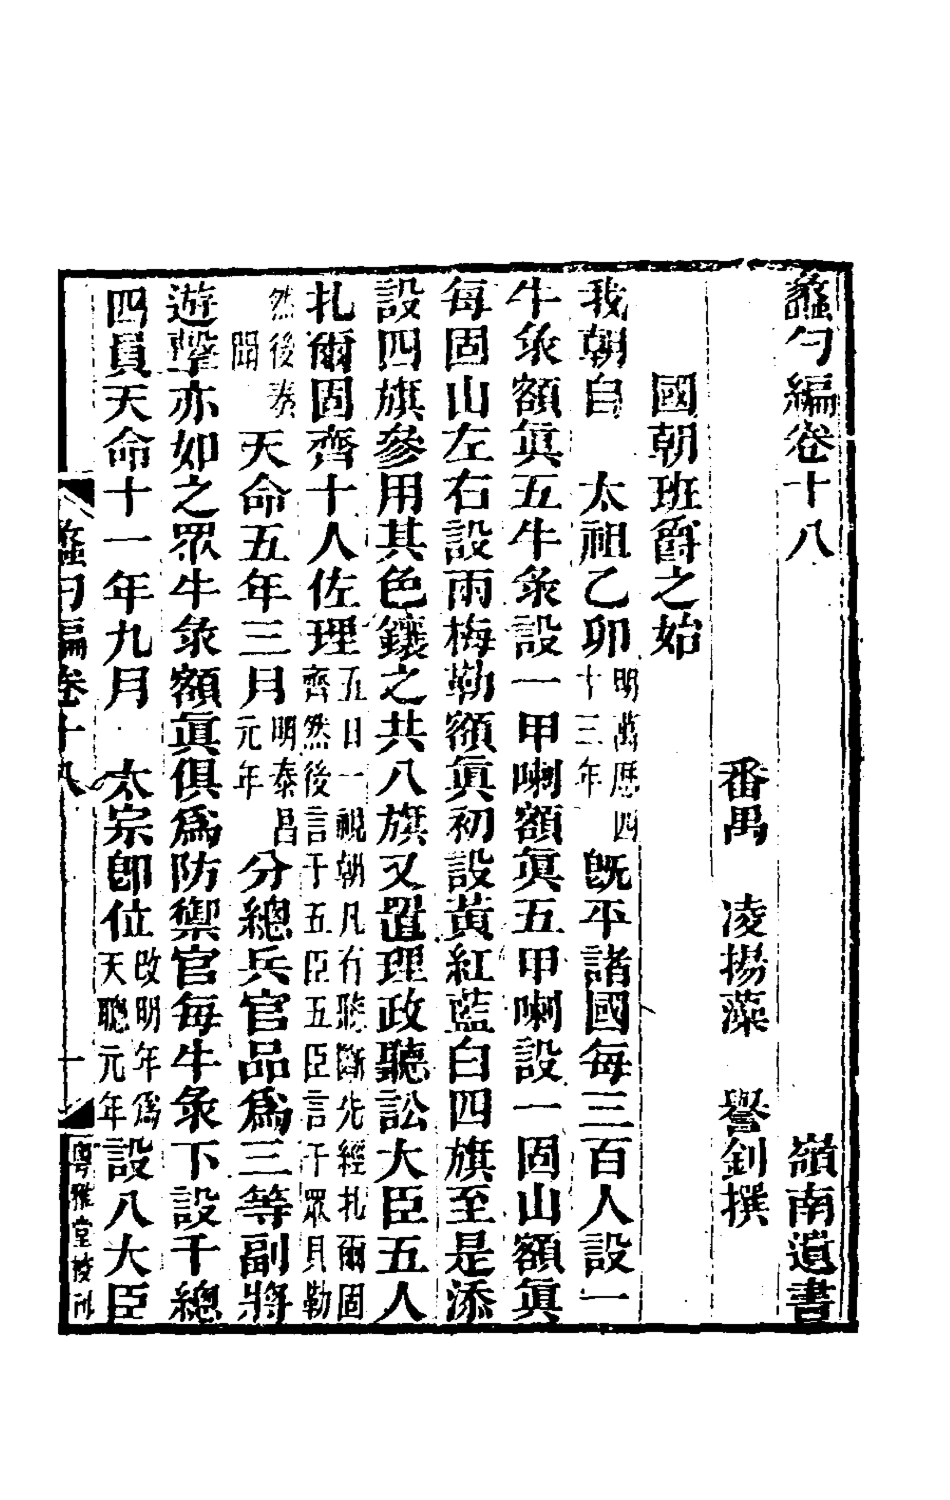 蠡勺編卷十八　嶺南遺書
番禺　凌揚藻　譽釗撰
國朝班爵之始
我朝自　太祖乙卯明萬厯四十三年既平諸國每三百人設一
牛彔額眞五牛彔設一甲喇額眞五甲喇設一固山額眞
每固山左右設兩梅勒額眞初設黃紅藍白四旗至是添
設四旗參用其色鑲之共八旗又置理政聽訟大臣五人
扎爾固齊十人佐理五日一視朝凡有聽斷先經扎爾固齊然後言于五臣五臣言于眾貝勒
然後奏聞　天命五年三月明泰昌元年　分總兵官品爲三等副將
遊擊亦如之眾牛彔額眞俱爲防禦官每牛彔下設千總
四員天命十一年九月　太宗卽位改明年爲天聰元年設八大臣
蠡勺編卷十八　一　粵雅堂校刊